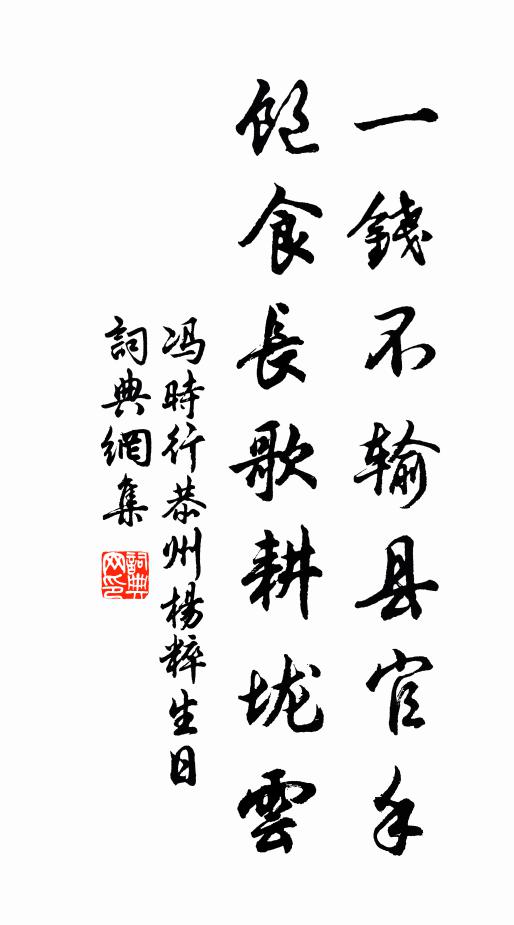 一錢不输县官手
飽食長歌耕垅雲
冯時行恭州楊粹生日
詞典網集
詞典网印